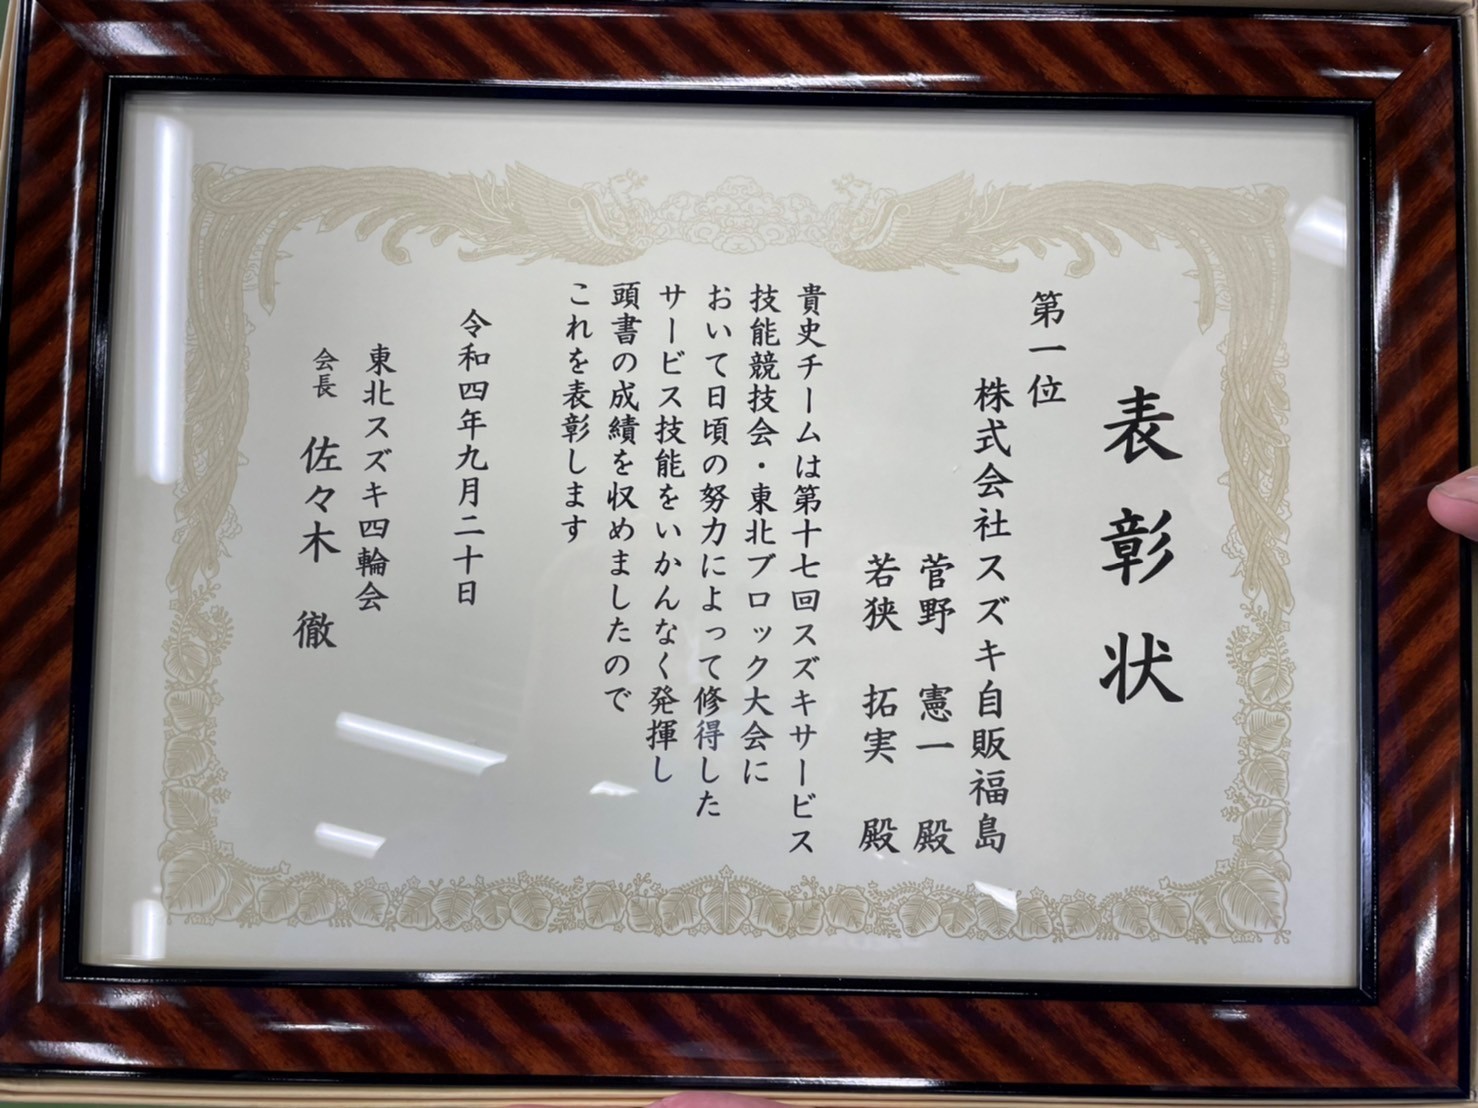 表彰状
第一位
株式会社スズキ自販福島
菅野 憲一 殿
若狭 拓実 殿
貴史チームは第十七回スズキサービス
技能競技会・東北ブロック大会に
おいて日頃の努力によって修得した
サービス技能をいかんなく発揮し
頭書の成績を収めましたので
これを表彰します
令和四年九月二十日
東北スズキ四輪会
会長 佐々木 徹